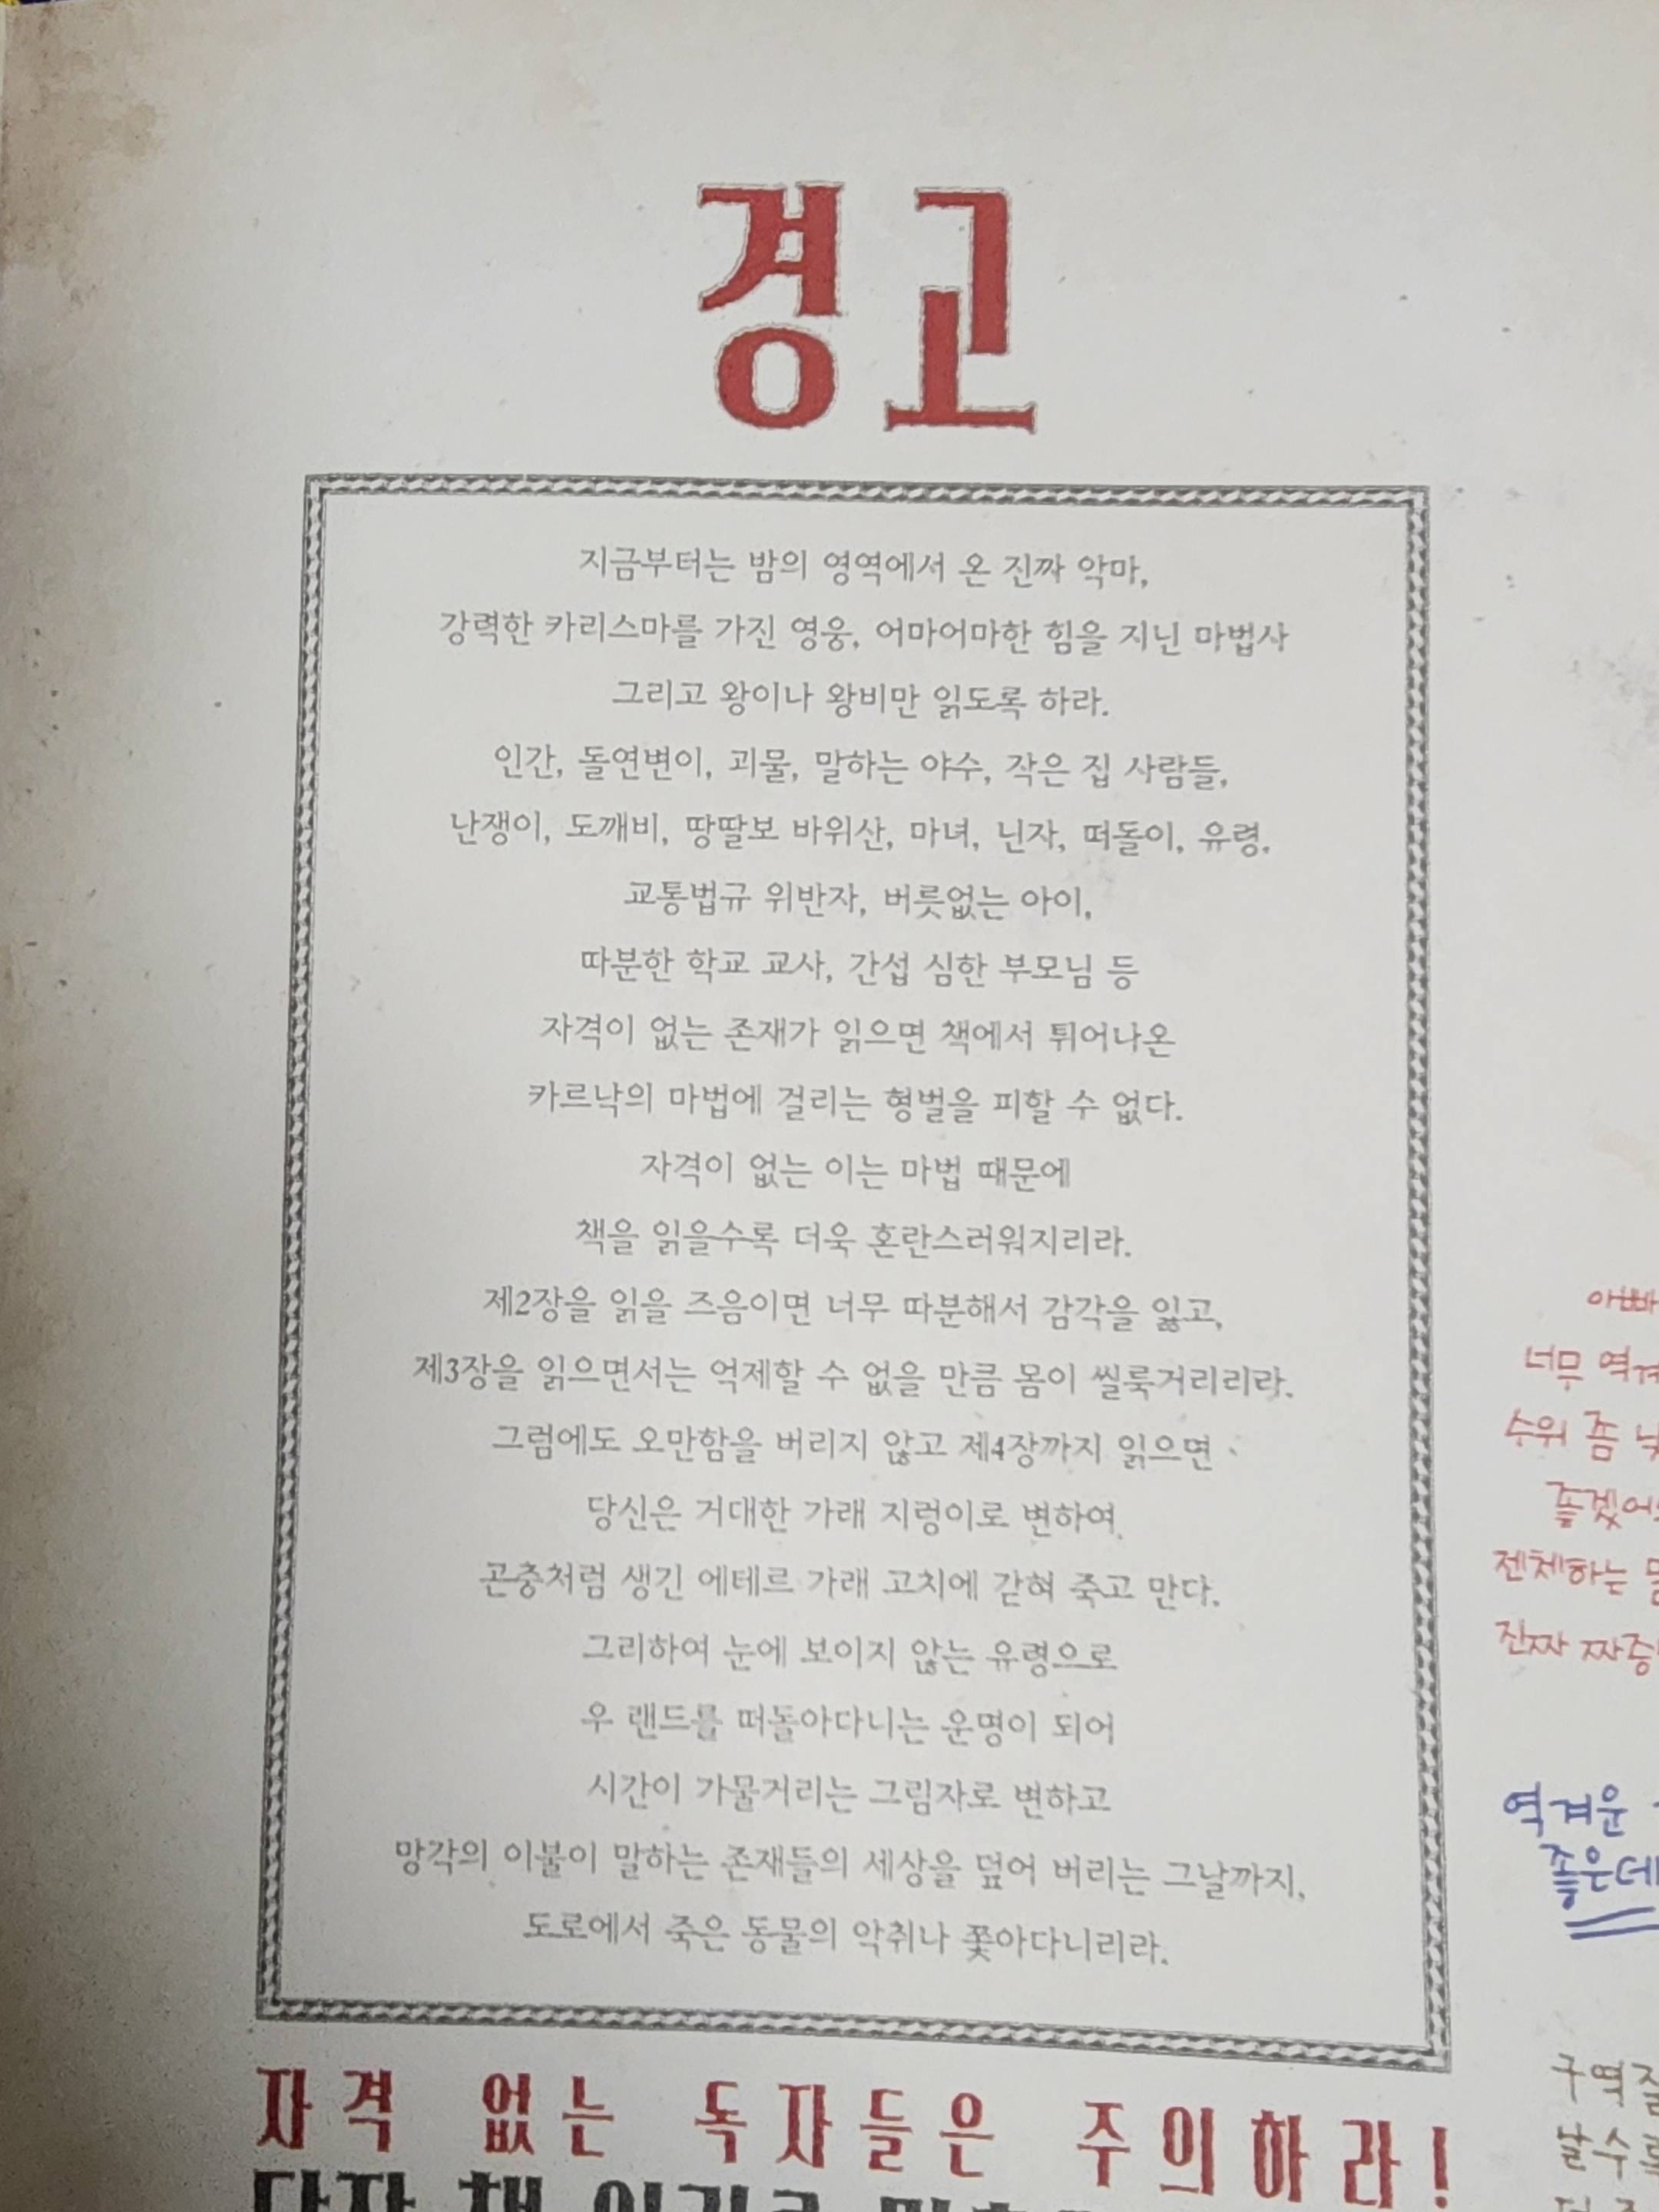 경고
지금부터는 밤의 영역에서 온 진짜 악마,
강력한 카리스마를 가진 영웅, 어마어마한 힘을 지닌 마법사
그리고 왕이나 왕비만 읽도록 하라.
인간, 돌연변이, 괴물, 말하는 야수, 작은 집 사람들,
난쟁이, 도깨비, 땅딸보 바위산, 마녀, 닌자, 떠돌이, 유령,
교통법규 위반자, 버릇없는 아이,
따분한 학교 교사, 간섭 심한 부모님 등
자격이 없는 존재가 읽으면 책에서 튀어나온
카르낙의 마법에 걸리는 형벌을 피할 수 없다.
자격이 없는 이는 마법 때문에
책을 읽을수록 더욱 혼란스러워지리라.
제2장을 읽을 즈음이면 너무 따분해서 감각을 잃고,
제3장을 읽으면서는 억제할 수 없을 만큼 몸이 씰룩거리리라.
그럼에도 오만함을 버리지 않고 제4장까지 읽으면
당신은 거대한 가래 지렁이로 변하여
곤충처럼 생긴 에테르 가래 고치에 갇혀 죽고 만다.
그리하여 눈에 보이지 않는 유령으로
우 랜드를 떠돌아다니는 운명이 되어
시간이 가물거리는 그림자로 변하고
망각의 이불이 말하는 존재들의 세상을 덮어 버리는 그날까지,
도로에서 죽은 동물의 악취나 쫓아다니리라.
자격 없는 독자들은 주의하라!
아빠
너무
수위 좀
젠체하는
진짜
역겨운
좋은데